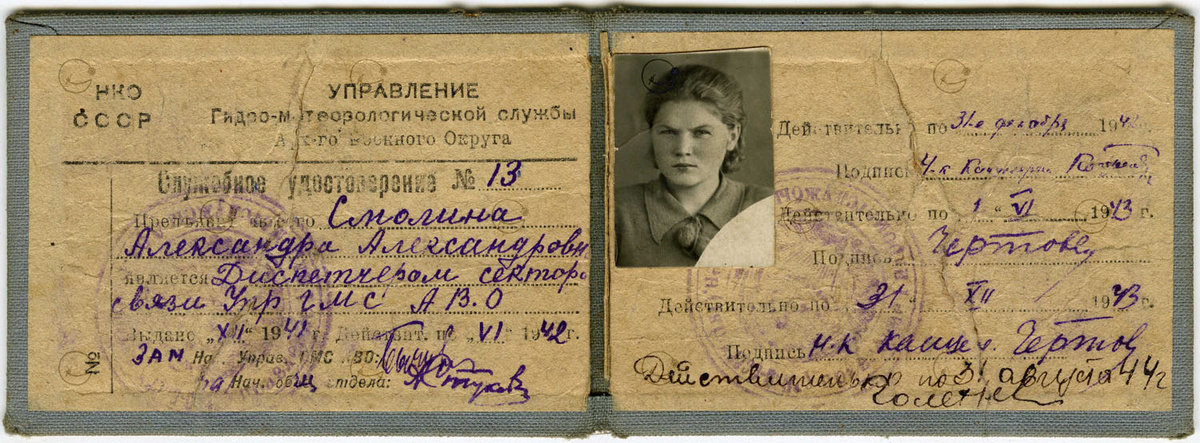 НКО
СССР
УПРАВЛЕНИЕ
Гидро-метеорологической службы
Арх-го Военного Округа
Служебное удостоверение № 13
Пред'яви Смолина
Александра Александровн
является Диспетчером сектора
связи Упр ГМС АВО
Выдано „XII“ 1941 г. Действит. по „ VI “ 1942
ЗАМ На Управ. ГМС АВО:
Нач. общ отдела:
№
Действительно по 31-е декабря 1942 г.
Подпись Н-к Канцелярии
Действительно по „ 1 “ VI 1943 г.
Подпись Чертов
Действительно по „ 31 “ XII 1943 г.
Подпись Н-к канцел. Чертов
Действительно по 31 августа 44 г